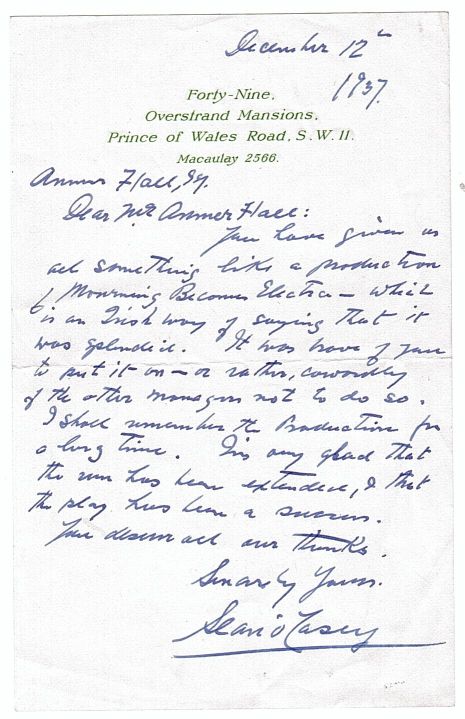 December 12th
1937.
Forty-Nine,
Overstrand Mansions,
Prince of Wales Road, S.W.11.
Macaulay 2566.
Anmer Hall, Esq.
Dear Mr Anmer Hall:
You have given us
all something like a production
of Mourning Becomes Electra — which
is an Irish way of saying that it
was splendid. It was brave of you
to put it on — or rather, cowardly
of the other managers not to do so.
I shall remember the Production for
a long time. I'm very glad that
the run has been extended, & that
the play has been a success.
You deserve all our thanks.
Sincerely Yours.
Sean O'Casey